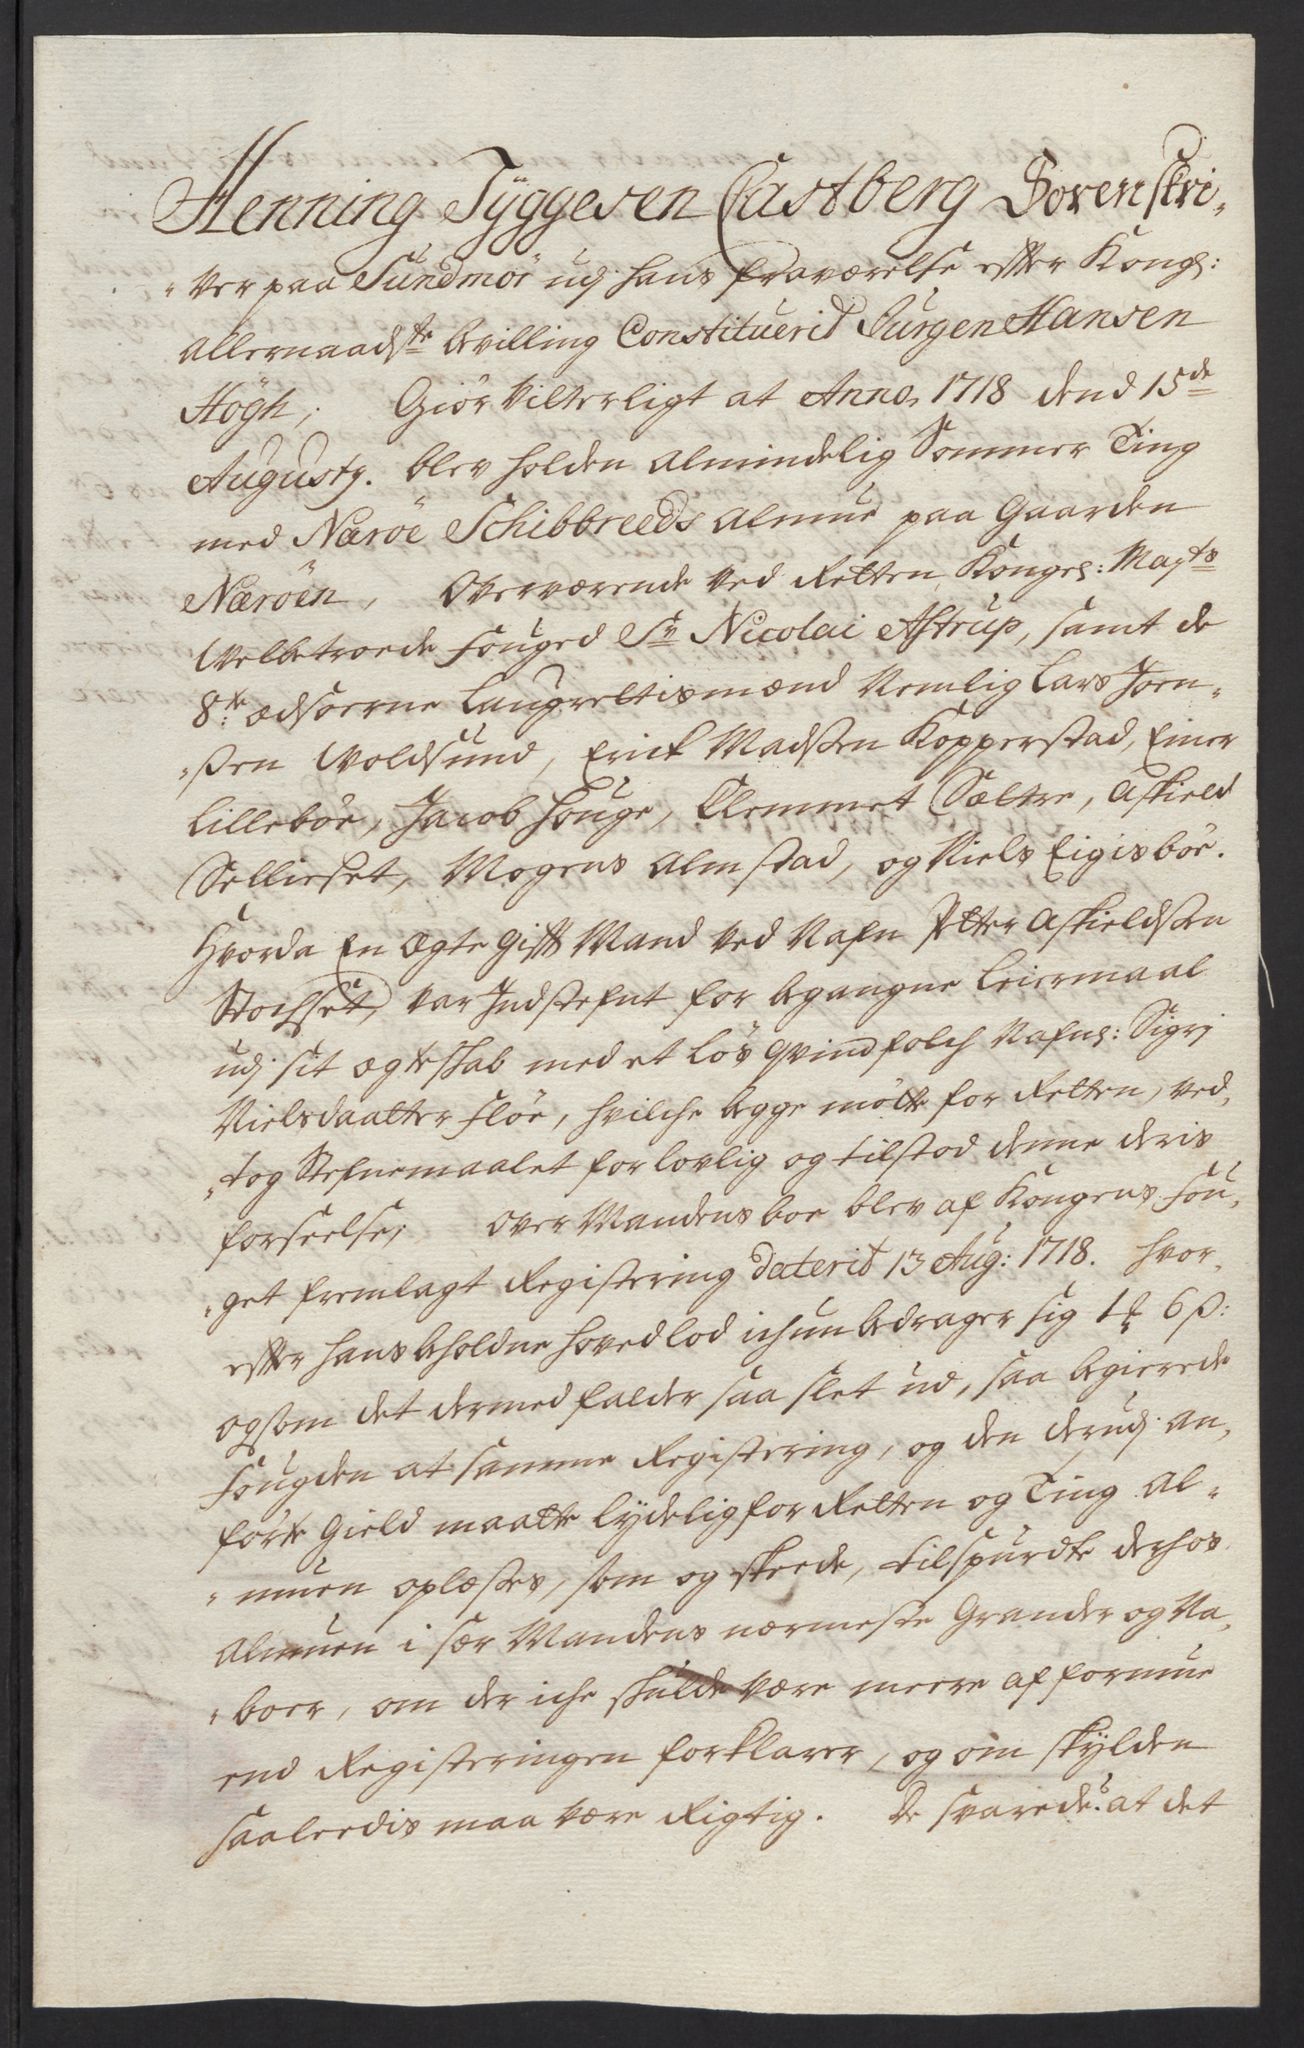 Henning Tÿggesen Castberg Sorenskri-
-ver paa Sundmör udj hans fraværelse efter Kongl:
allernaadste bevilling Constituerit Jürgen Hansen
Högh; Giör Vitterligt at Anno 1718 dend 15de
Augusty. blev holden almindelig Sommer Ting
med Næröe Schibbreeds almue paa Gaarden
Næröen, Overværende ved Retten Kongel: Mayts
Velbetroede fouged Sr Nicolai Astrup, samt de
8te ædsoerne Laugrettismænd Nemlig Lars Joen-
-ßen Voldsund, Erick Madßen Kopperstad, Einer
Lilleböe, Jacob Houge, Clemmet Sætre, Askield
Sellieset, Mogens Almestad, og Niels Eigisböe.
Hvorda En Egte Gifft Mand ved Nafn Petter Askieldßen
Stochset, var Indstefnt for begangne Leiermaal
udj sit Egteskab med et Lös qvindfolch Nafnl: Sigrj
Nielsdaatter Flöe, hvilche begge mötte for Retten, ved-
-tog Stefnemaalet for lovlig og tilstod denne deris
forseelse; Over Mandens boe blev af Kongens Fou-
-get fremlagt Registering daterit 13 Aug: 1718. hvor-
efter hans beholdne hovedlod ichun bedrager sig 1 6 ß:
og som det dermed falder saa slet ud, saa begierede
Fougden at samme Registering, og den derudj an-
förte Gield maatte lydelig for Retten og Ting Al-
-muen oplæßes, som og skeede, tilspurdte derhos
Almuen i sær Mandens nærmeste Grander og Na-
-boer, om der iche skulde være meere af formue
end Registeringen forklarer, og om skylden
saaleedis maa være Rigtig. De svarede: at det